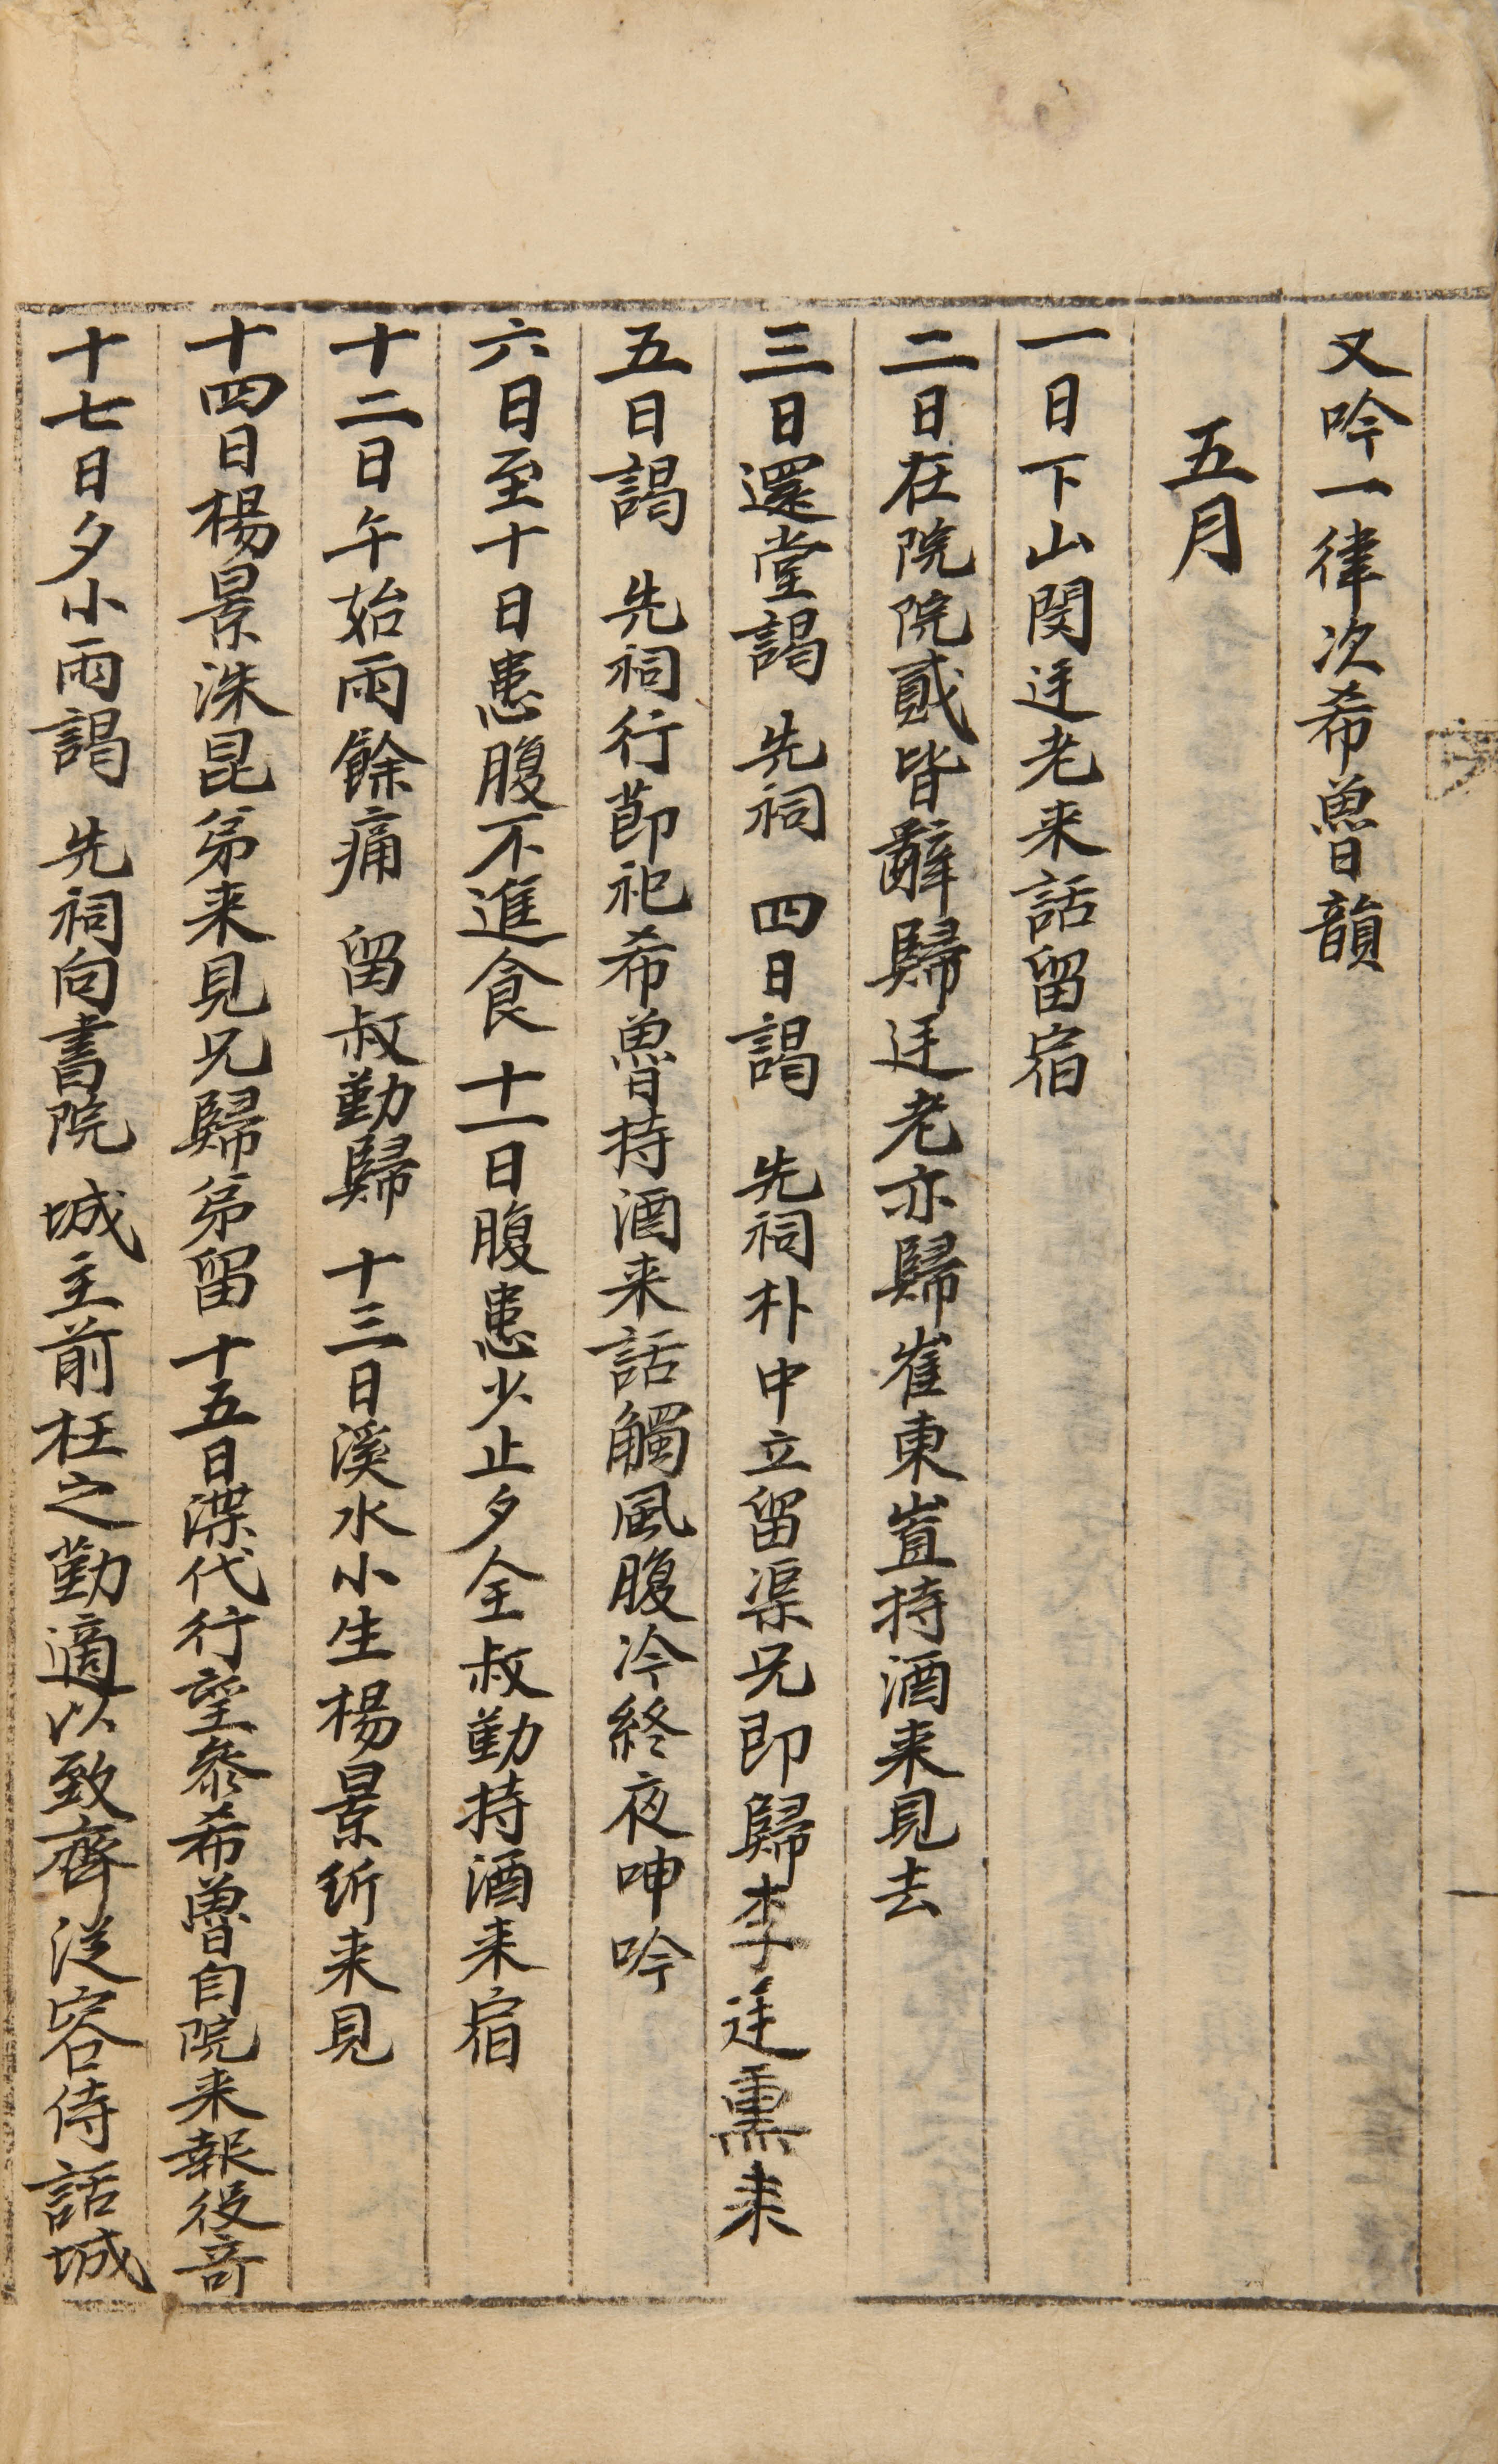 又吟一律次希魯韻
五月
一日下山閔廷老来話留宿
二日在院院貳皆辭歸廷老亦歸崔東岦持酒来見去
三日還堂謁 先祠 四日謁 先祠朴中立留渠兄即歸李廷熏来
五日謁 先祠行節祀希魯持酒来話觸風腹冷終夜呻吟
六日至十日患腹不進食十一日腹患少止夕全叔勤持酒来宿
十二日午始雨餘痛 留叔勤歸 十三日溪水小生楊景 来見
十四日楊景洙昆弟来見兄歸弟留 十五日渫代行望叅希魯自院来報役竒
十七日夕小雨謁 先祠向書院 城主前枉之勤適以致齊從容侍話城